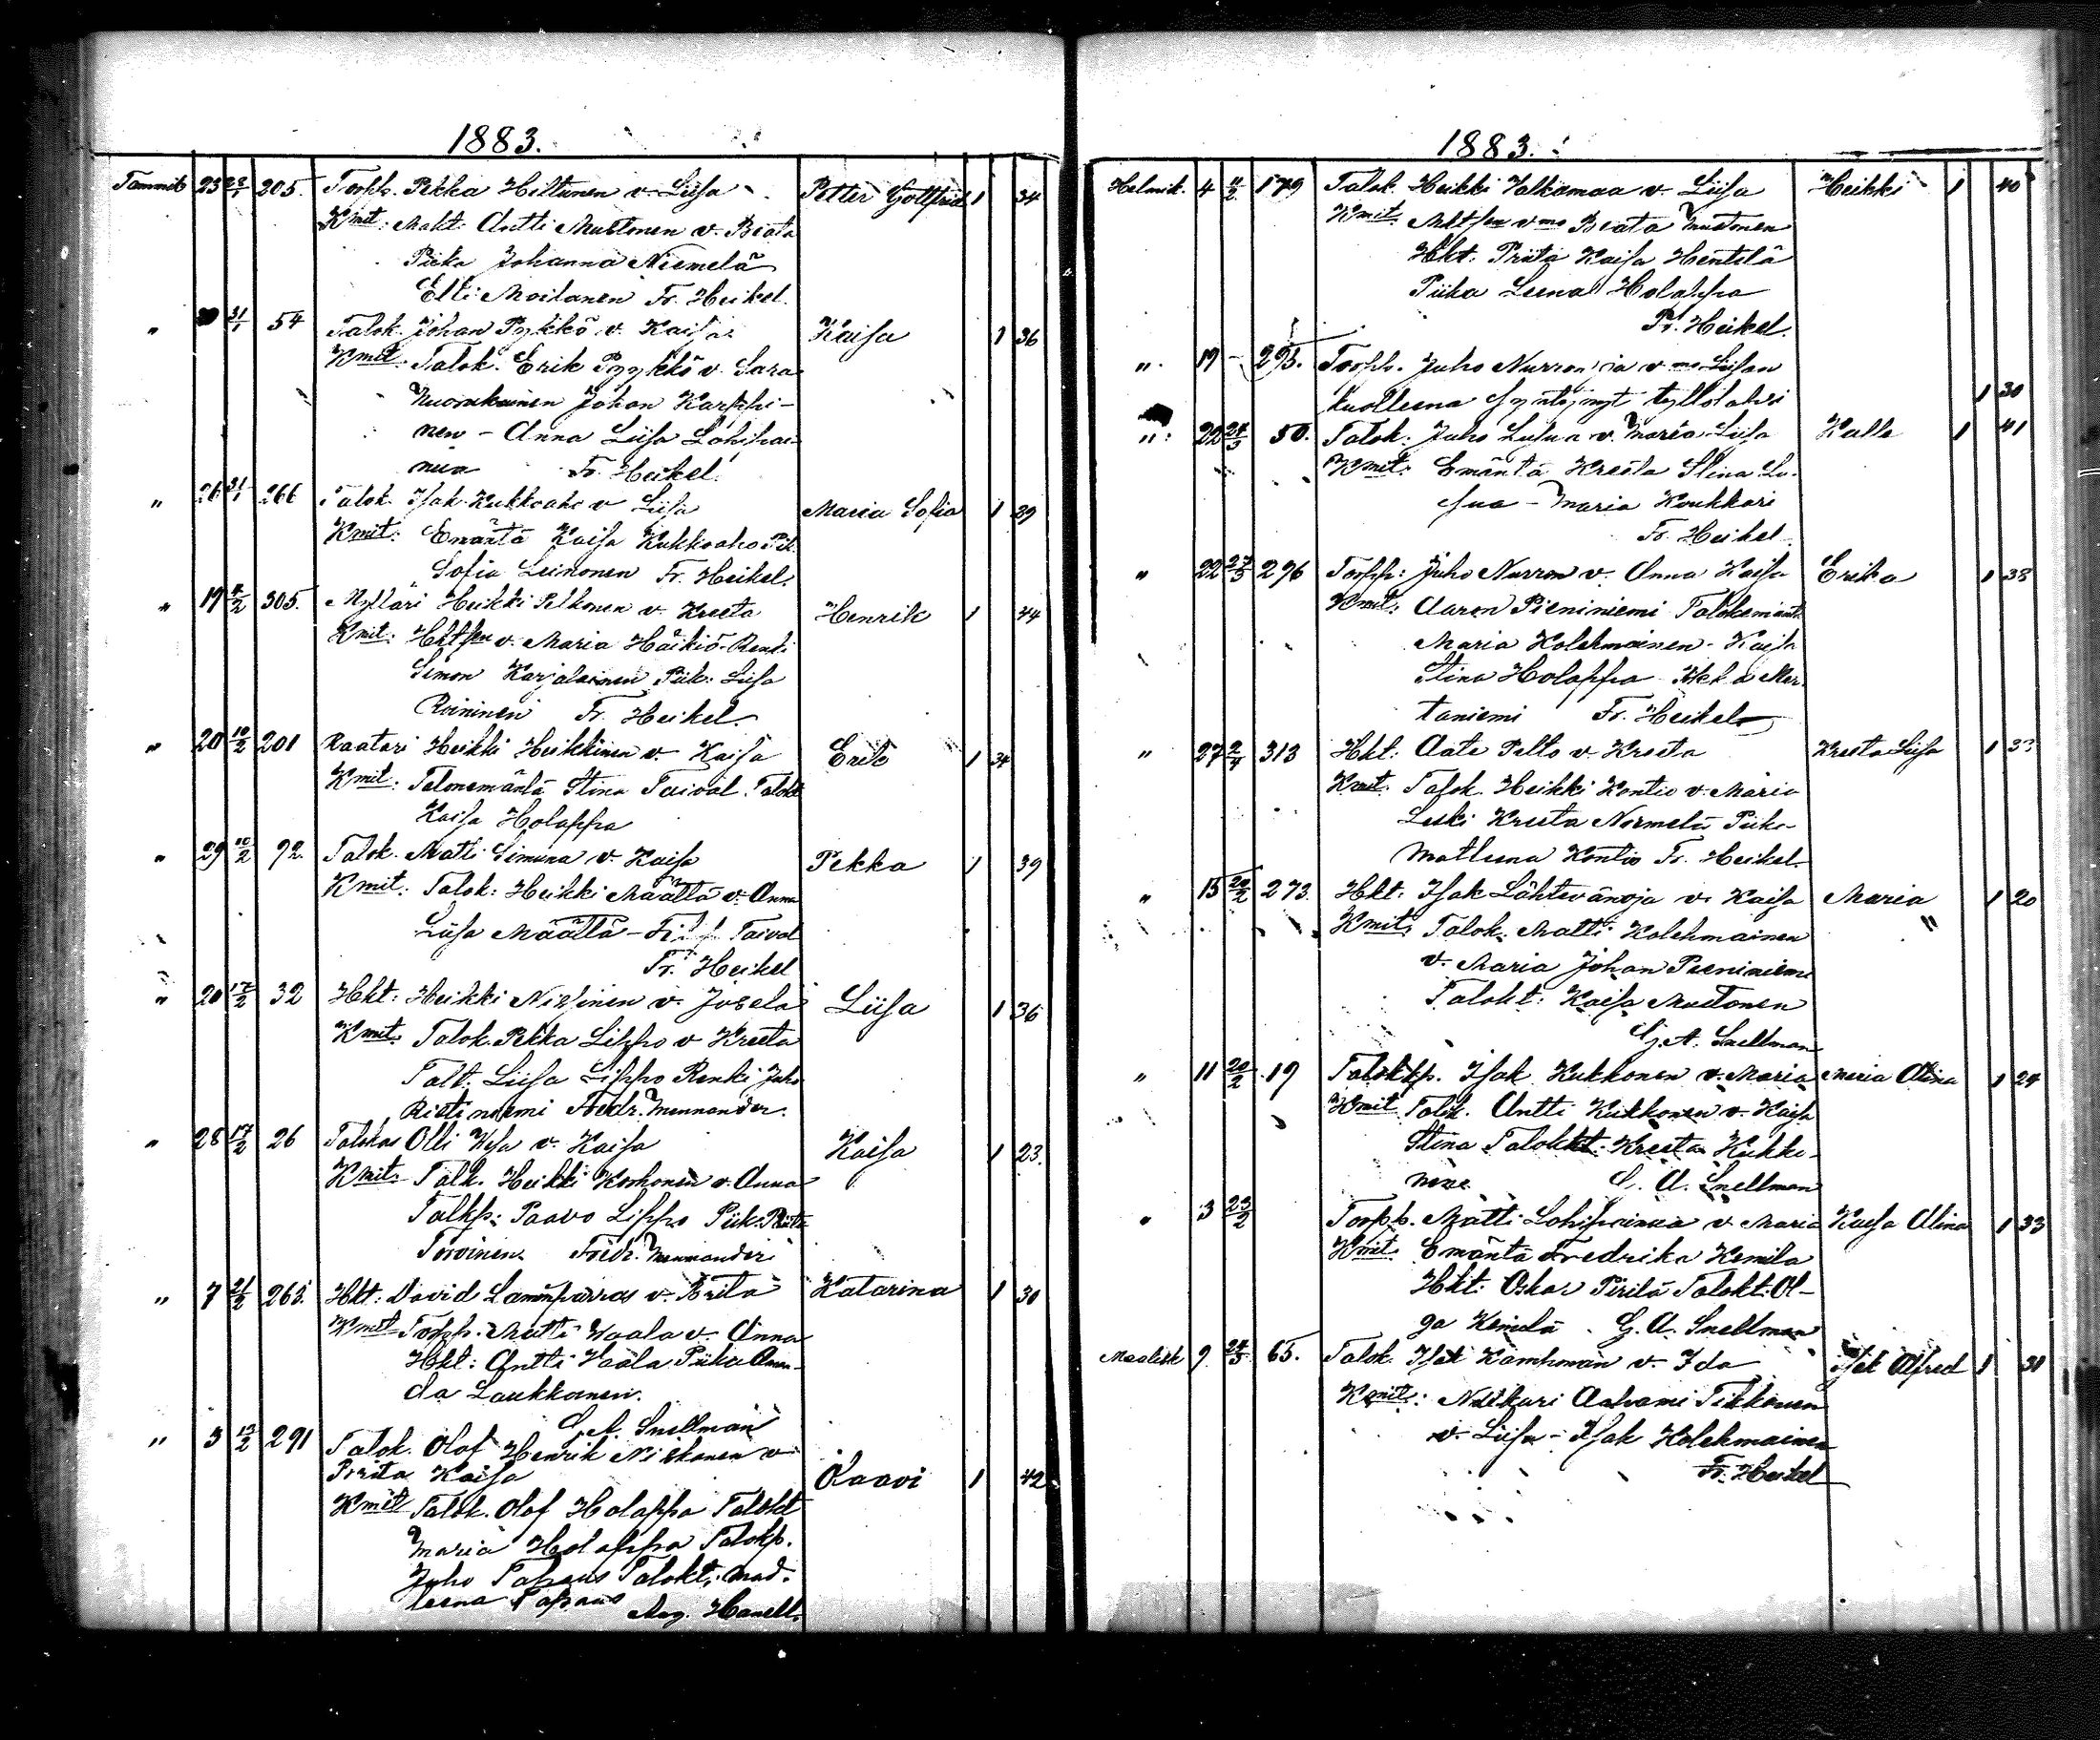 1883.
Tammik 23 28/1 205. Torpp. Pekka Hiltunen v. Liisa Petter Gottfrid 1 34
Kmit: Makt: Antti Mustonen v. Beata
Piika Johanna Niemelä
Elli Moilanen Fr. Heikel.
" 31/1 54 Talok. Johan Pykkö v. Kaisa Kaisa 1 36
Kmit: Talok. Erik Pyykkö v. Sara
Nuorukainen Johan Karppi-
nen - Anna Liisa Lohipai-
nen Fr. Heikel.
" 26 31/1 266 Talok. Isak Kukkoaho v Liisa Maria Sofia 1 29
Kmit: Emäntä Kaisa Kukkoaho Piik.
Sofia Leinonen Fr. Heikel.
" 19 305. Mylläri Heikki Pelkonen v. Kreeta Henrik 1 44
Kmit: v. Maria Häikiö - Renki
Simon Karjalainen Piik: Liisa
Roininen Fr. Heikel.
" 20 10/2 201 Raatari Heikki Heikkinen v. Kaisa Erik 1 34
Kmit: Talonemäntä Stina Taival. Talokt
Kaisa Holappa
" 29 10/2 92. Talok. Matti Simuna v. Kaisa Pekka 1 39
Kmit: Talok: Heikki Määttä v. Anna
Liisa Määttä - Taival
Fr. Heikel
" 20 17/2 32 Hkt: Heikki v. Josela Liisa 1 36
Kmit. Talok. Pekka Lippo v Kreeta
Talt. Liisa Lippo Renki Juho
Ristiniemi Fredr. Mennander.
" 28 17/2 26 Talokas Olli Wesa v. Kaisa Kaisa 1 23.
Kmit: Talk. Heikki Korhonen v. Anna
Talkp: Paavo Lippo Piik: Riita
Toroinen. Fredr. Mennander
" 7 21/2 263. Hkt: David Lamminparras v. Brita Katarina 1 30
Kmit Torpp. Matti Waala v. Anna
Hkt: Antti Waala Piika Aman-
da Laukkanen.
G. A. Snellman
" 3 13/2 291 Talok. Olof Henrik Niskanen v
Priita Kaisa Paavi 1 42
Kmit Talok. Olof Holappa Talokt
Maria Holappa Talokp.
Juho Tapaus Talokt; Mad.
leena Tapaus Aug. Hanell.
1883.
Helmik. 4 11/2 179 Talok. Heikki Valkamaa v. Liisa Heikki 1 40
Kmit. vmo Beata Mustonen
Hkt: Priita Kaisa Hentilä
Piika Leena Holappa
Fr. Heikel.
" 19 - 295. Torpp. Juho Nurron ja vmo Liisan
kuolleena syntynyt tyttölapsi 1 30
" 22 24/3 50. Talok: Juho Lusua v. Maria Liisa Kalle 1 41
Kmit: Emäntä Kreeta Stina Lu-
sua - Maria Koukkari
Fr. Heikel.
" 22 27/3 296 Torpp: Juho Nurron v. Anna Kaisa Erika 1 38
Kmit: Aaron Pieniniemi Talokemänt.
Maria Kolehmainen - Kaisa
Stina Holappa Mer-
taniemi Fr. Heikel
" 27 2/4 313 Hkt: Aate Pelto v. Kreeta Kreeta Liisa 1 33
Kmit. Talok. Heikki Kontio v. Maria
Leski Kreeta Niemelä Piika
Matleena Kontio Fr. Heikel.
" 15 20/2 273. Hkt: Isak Lähtevänoja v. Kaisa Maria 1 20
Kmit. Talok. Matti Kolehmainen "
v. Maria Johan Pieniniemi
Talokt: Kaisa Mustonen
G. A. Snellman
" 11 20/2 19 Talokkp. Isak Kukkonen v. Maria Maria Alina 1 24
Kmit Talok. Antti Kukkonen v. Kaisa
Stina Talokkt. Kreeta Kukko-
nen G. A. Snellman
" 3 23/2 Torpp. Matti Lohipainen v. Maria Kaisa Alina 1 33
Kmit. Emäntä Fredrika Kemila
Hkt: Oskar Pirilä Talokt: Ol-
ga Kemilä. G. A. Snellman
Maalisk 9 24/3 65. Talok. Isak Kamhman v. Ida Isak Alfred 1 31
Kmit: Nuttari Aapami Tikkanen
v. Liisa - Isak Kolehmainen
Fr. Heikel